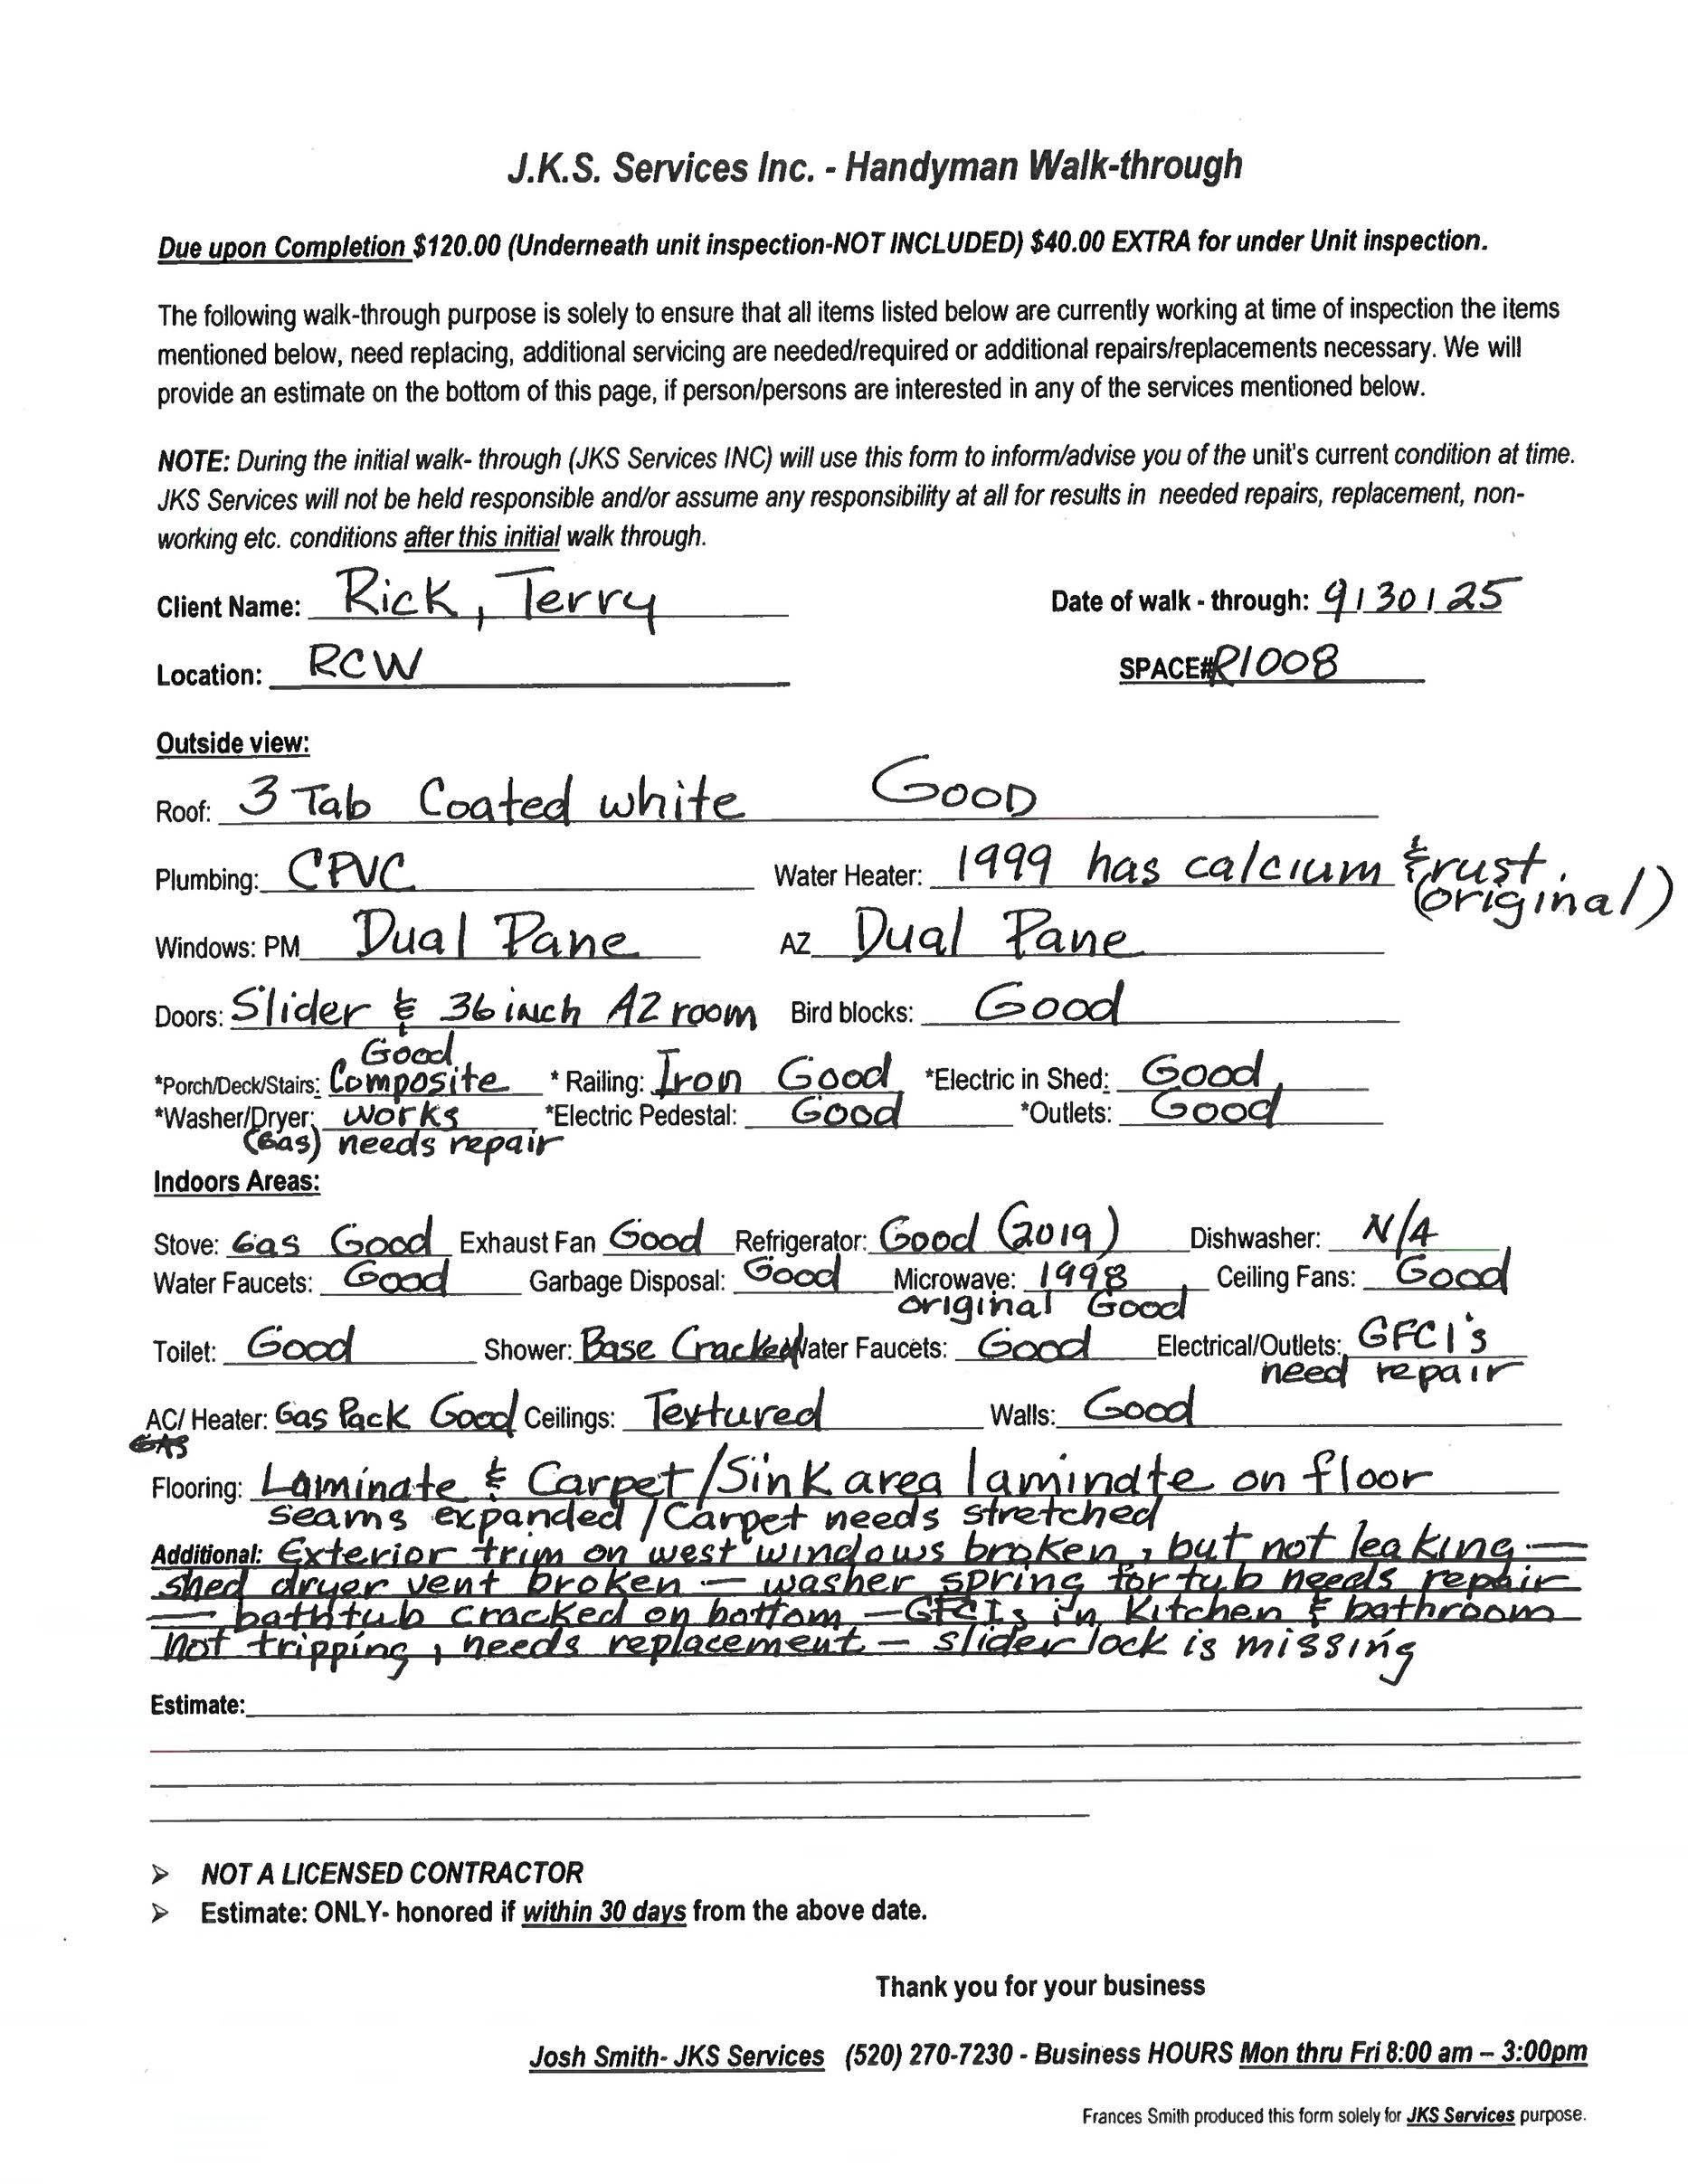 J.K.S. Services Inc. - Handyman Walk-through
Due upon Completion $120.00 (Underneath unit inspection-NOT INCLUDED) $40.00 EXTRA for under Unit inspection.
The following walk-through purpose is solely to ensure that all items listed below are currently working at time of inspection the items
mentioned below, need replacing, additional servicing are needed/required or additional repairs/replacements necessary. We will
provide an estimate on the bottom of this page, if person/persons are interested in any of the services mentioned below.
NOTE: During the initial walk- through (JKS Services INC) will use this form to inform/advise you of the unit's current condition at time.
JKS Services will not be held responsible and/or assume any responsibility at all for results in needed repairs, replacement, non-
working etc. conditions after this initial walk through.
Client Name: Rick, Terry Date of walk - through: 9/30/25
Location: RCW SPACE# R1008
Outside view:
Roof: 3 Tab Coated white Good
Plumbing: CPVC Water Heater: 1999 has calcium & rust.
(original)
Windows: PM Dual Pane AZ Dual Pane
Doors: Slider & 36 inch AZ room Bird blocks: Good
Good
*Porch/Deck/Stairs: Composite * Railing: Iron Good *Electric in Shed: Good
*Washer/Dryer: works *Electric Pedestal: Good *Outlets: Good
(Gas) needs repair
Indoors Areas:
Stove: Gas Good Exhaust Fan Good Refrigerator: Good (2019) Dishwasher: N/A
Water Faucets: Good Garbage Disposal: Good Microwave: 1998 Ceiling Fans: Good
original Good
Toilet: Good Shower: Base Cracked Water Faucets: Good Electrical/Outlets: GFCI's
need repair
AC/ Heater: Gas Pack Good Ceilings: Textured Walls: Good
GAS
Flooring: Laminate & Carpet/Sink area laminate on floor
seams expanded / Carpet needs stretched
Additional: Exterior trim on west windows broken, but not leaking —
shed dryer vent broken — washer spring for tub needs repair
— bathtub cracked on bottom — GFCIs in Kitchen & bathroom
not tripping, needs replacement — slider lock is missing
Estimate:
➢ NOT A LICENSED CONTRACTOR
➢ Estimate: ONLY- honored if within 30 days from the above date.
Thank you for your business
Josh Smith- JKS Services (520) 270-7230 - Business HOURS Mon thru Fri 8:00 am – 3:00pm
Frances Smith produced this form solely for JKS Services purpose.